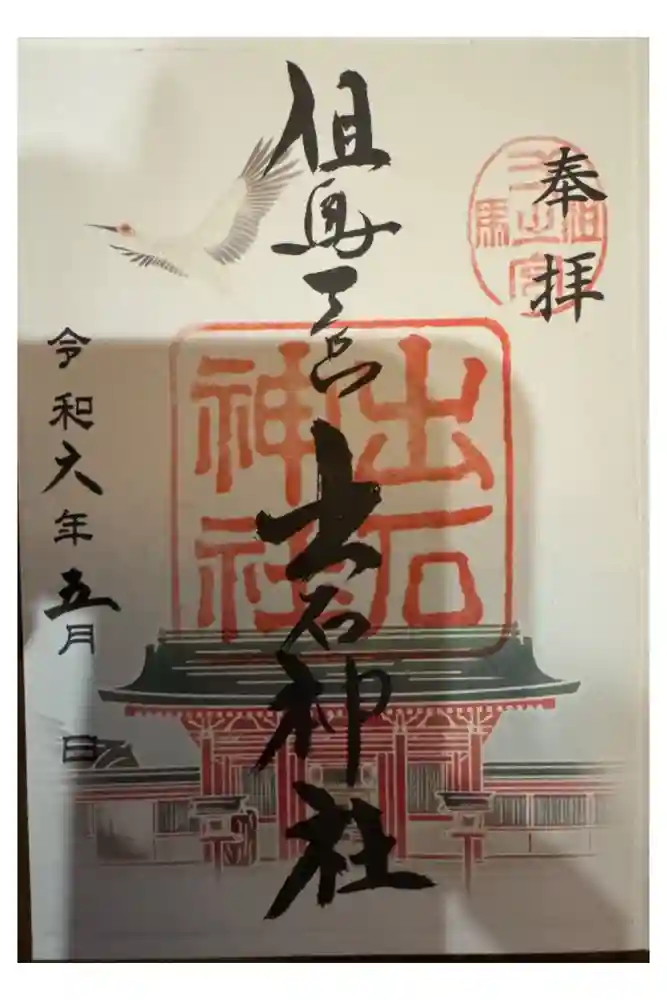 奉拝
但馬一宮
但馬一宮出石神社
出石神社
令和六年五月 日